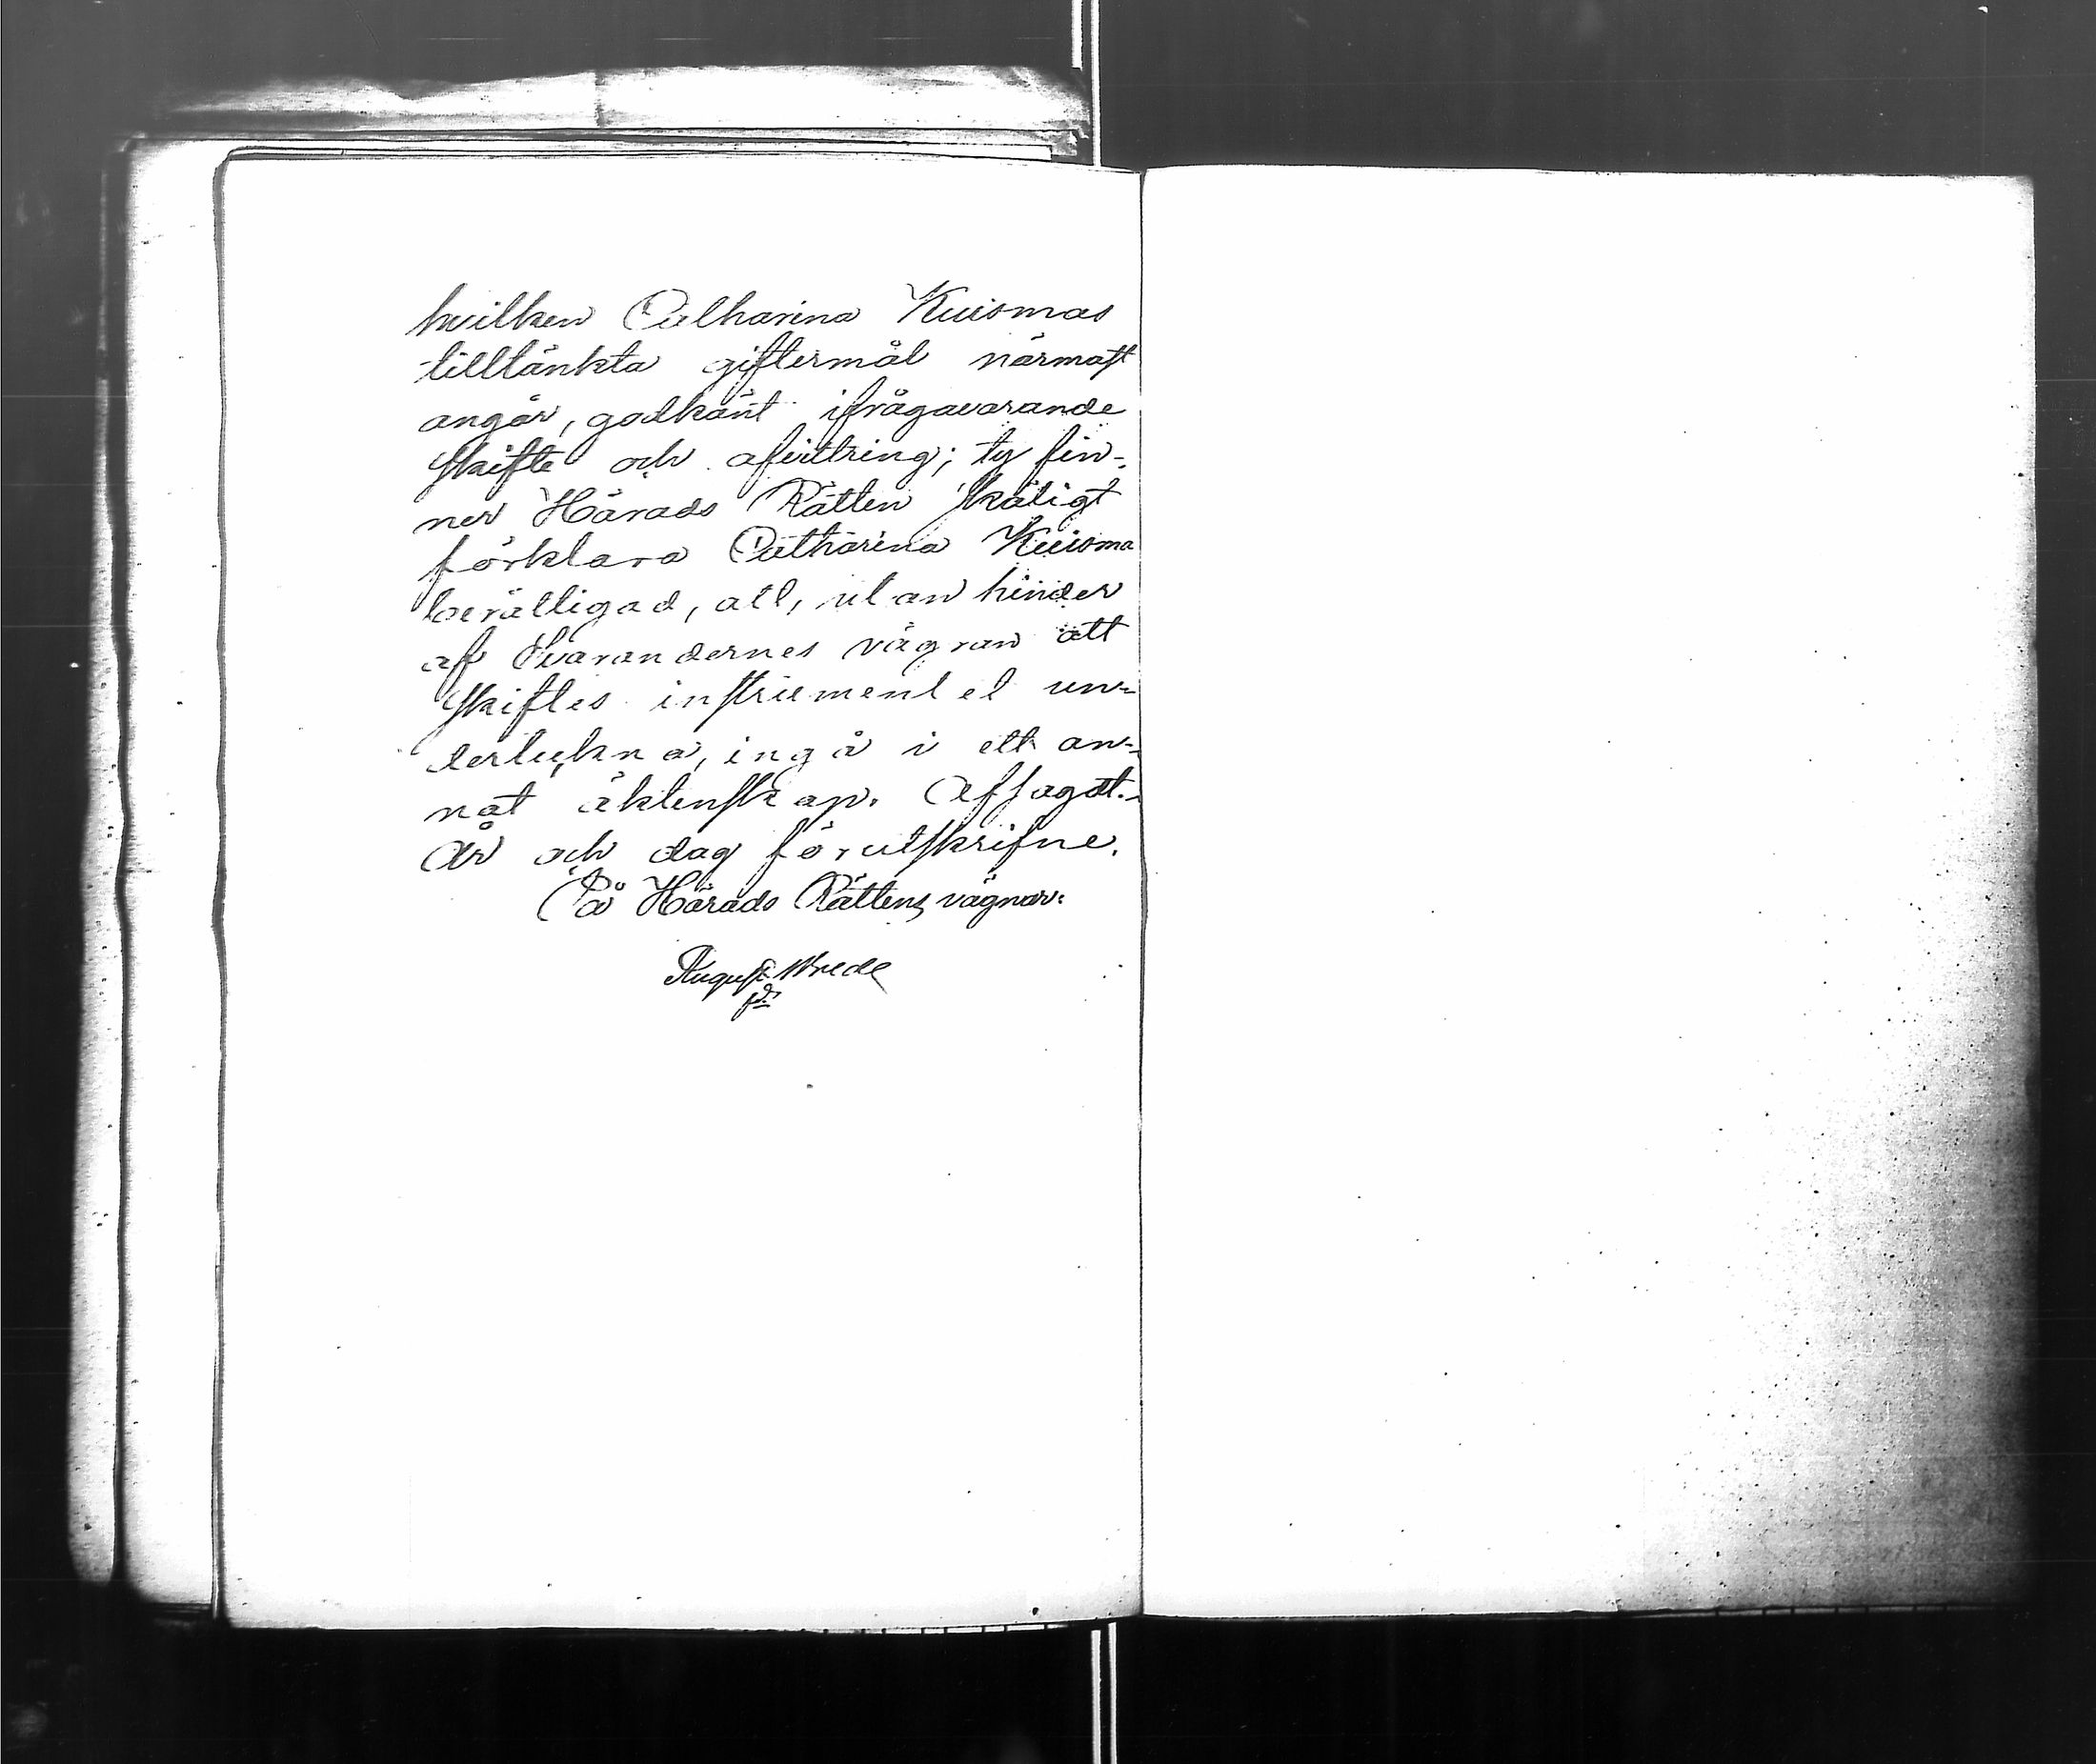 hvilken Catharina Kuismas
tilltänkta giftermål närmast
angår, godkänt ifrågavarande
skifte och afvittring; ty fin-
ner Härads Rätten skäligt
förklara Catharina Kuisma
berättigad, att, utan hinder
af Svarandernes vägran att
skiftes instrumentet un-
terteckna, ingå i ett an-
nat äktenskap. Afsagdt.
År och dag förutskrifne.
På Härads Rättens vägnar:
August Wrede